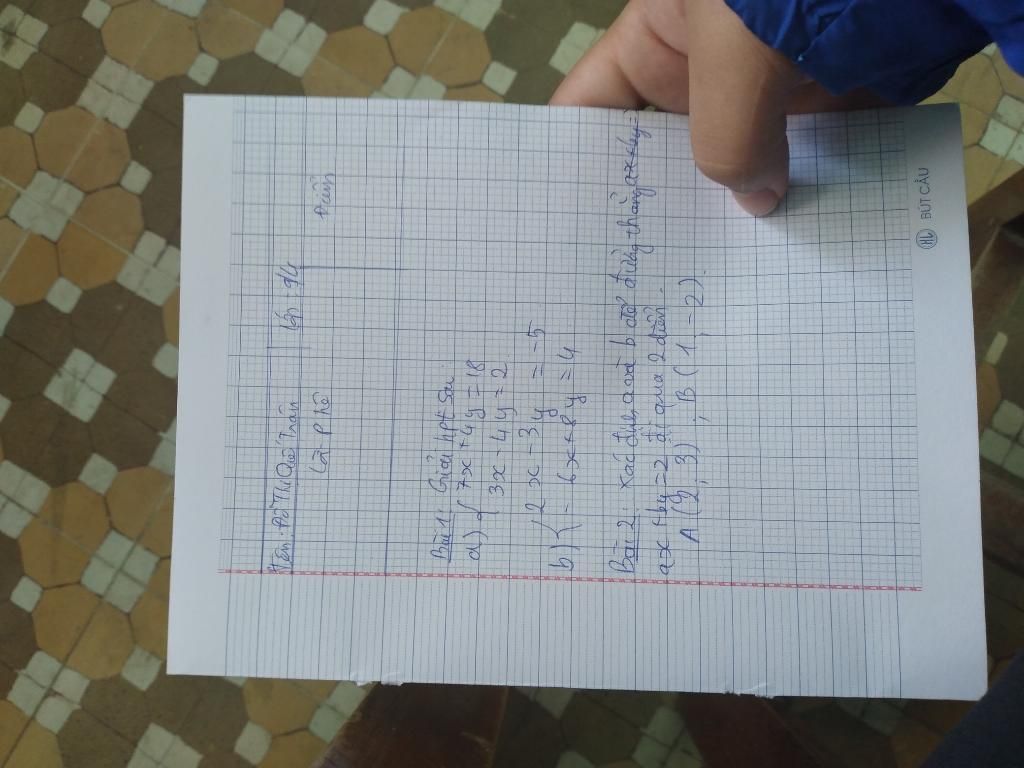 Tên: Đỗ Thị Quế Trân Lớp: 9/4
Lời phê Điểm
Bài 1: Giải hpt sau
a) { 7x + 4y = 18
3x - 4y = 2
b) { 2x - 3y = -5
- 6x + 8y = 4
Bài 2: Xác định a và b để đường thẳng ax + by =
ax + by = 2 đi qua 2 điểm.
A (2; 3) ; B (1; -2).
HL BÚT CẦU